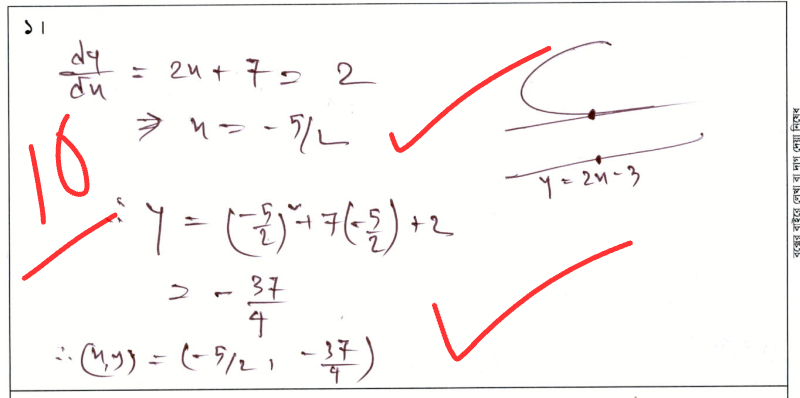 ১।
dy/dx = 2x + 7 = 2
⇒ x = -5/2
10
∴ y = (-5/2)² + 7(-5/2) + 2
= - 37/4
∴ (x,y) = (-5/2, -37/4)
y = 2x - 3
বক্সের বাইরে লেখা বা দাগ দেয়া নিষেধ